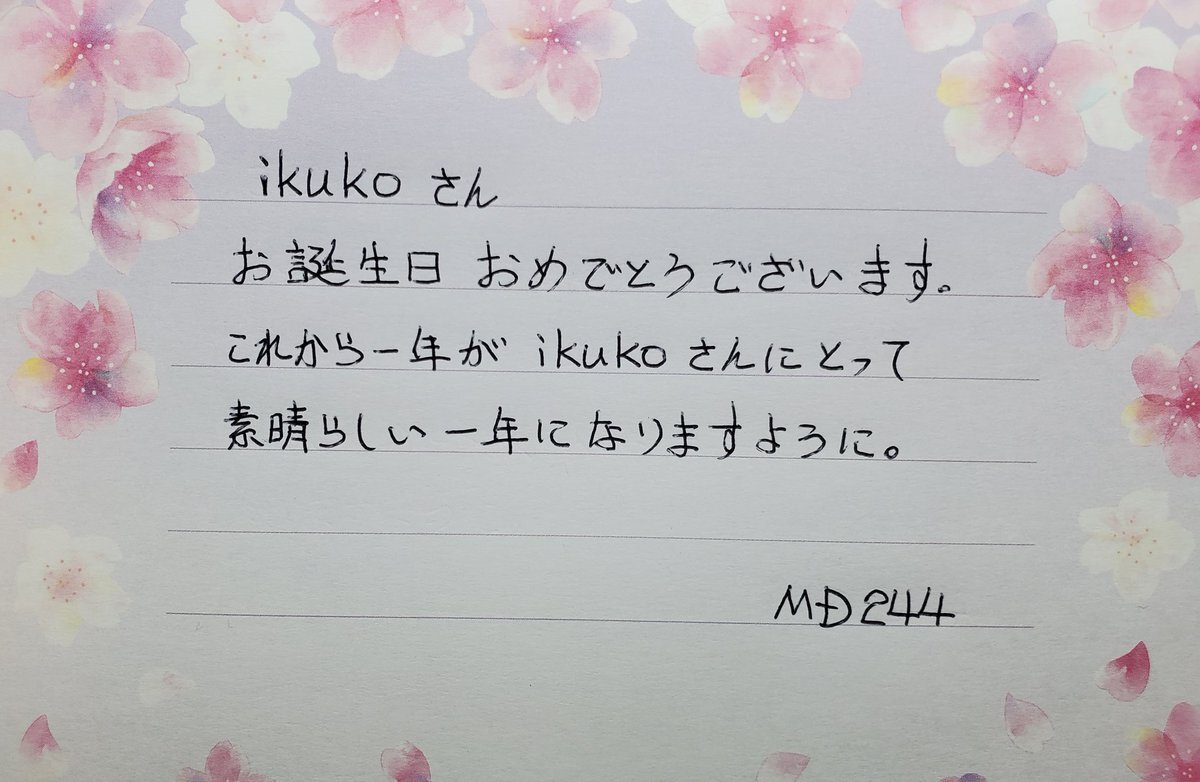 ikuko さん
お誕生日 おめでとうございます。
これから一年が ikuko さんにとって
素晴らしい一年になりますように。
MD244